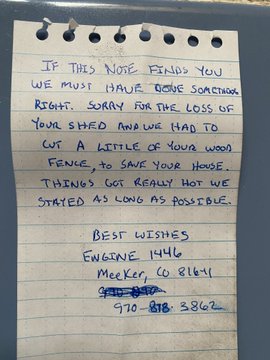 IF THIS NOTE FINDS YOU
WE MUST HAVE DONE SOMETHING
RIGHT. SORRY FOR THE LOSS OF
YOUR SHED AND WE HAD TO
CUT A LITTLE OF YOUR WOOD
FENCE, to SAVE YOUR HOUSE.
THINGS GOT REALLY HOT WE
STAYED AS LONG AS POSSIBLE.
BEST WISHES
ENGINE 1446
MeeKer, CO 81641
970-878-3862